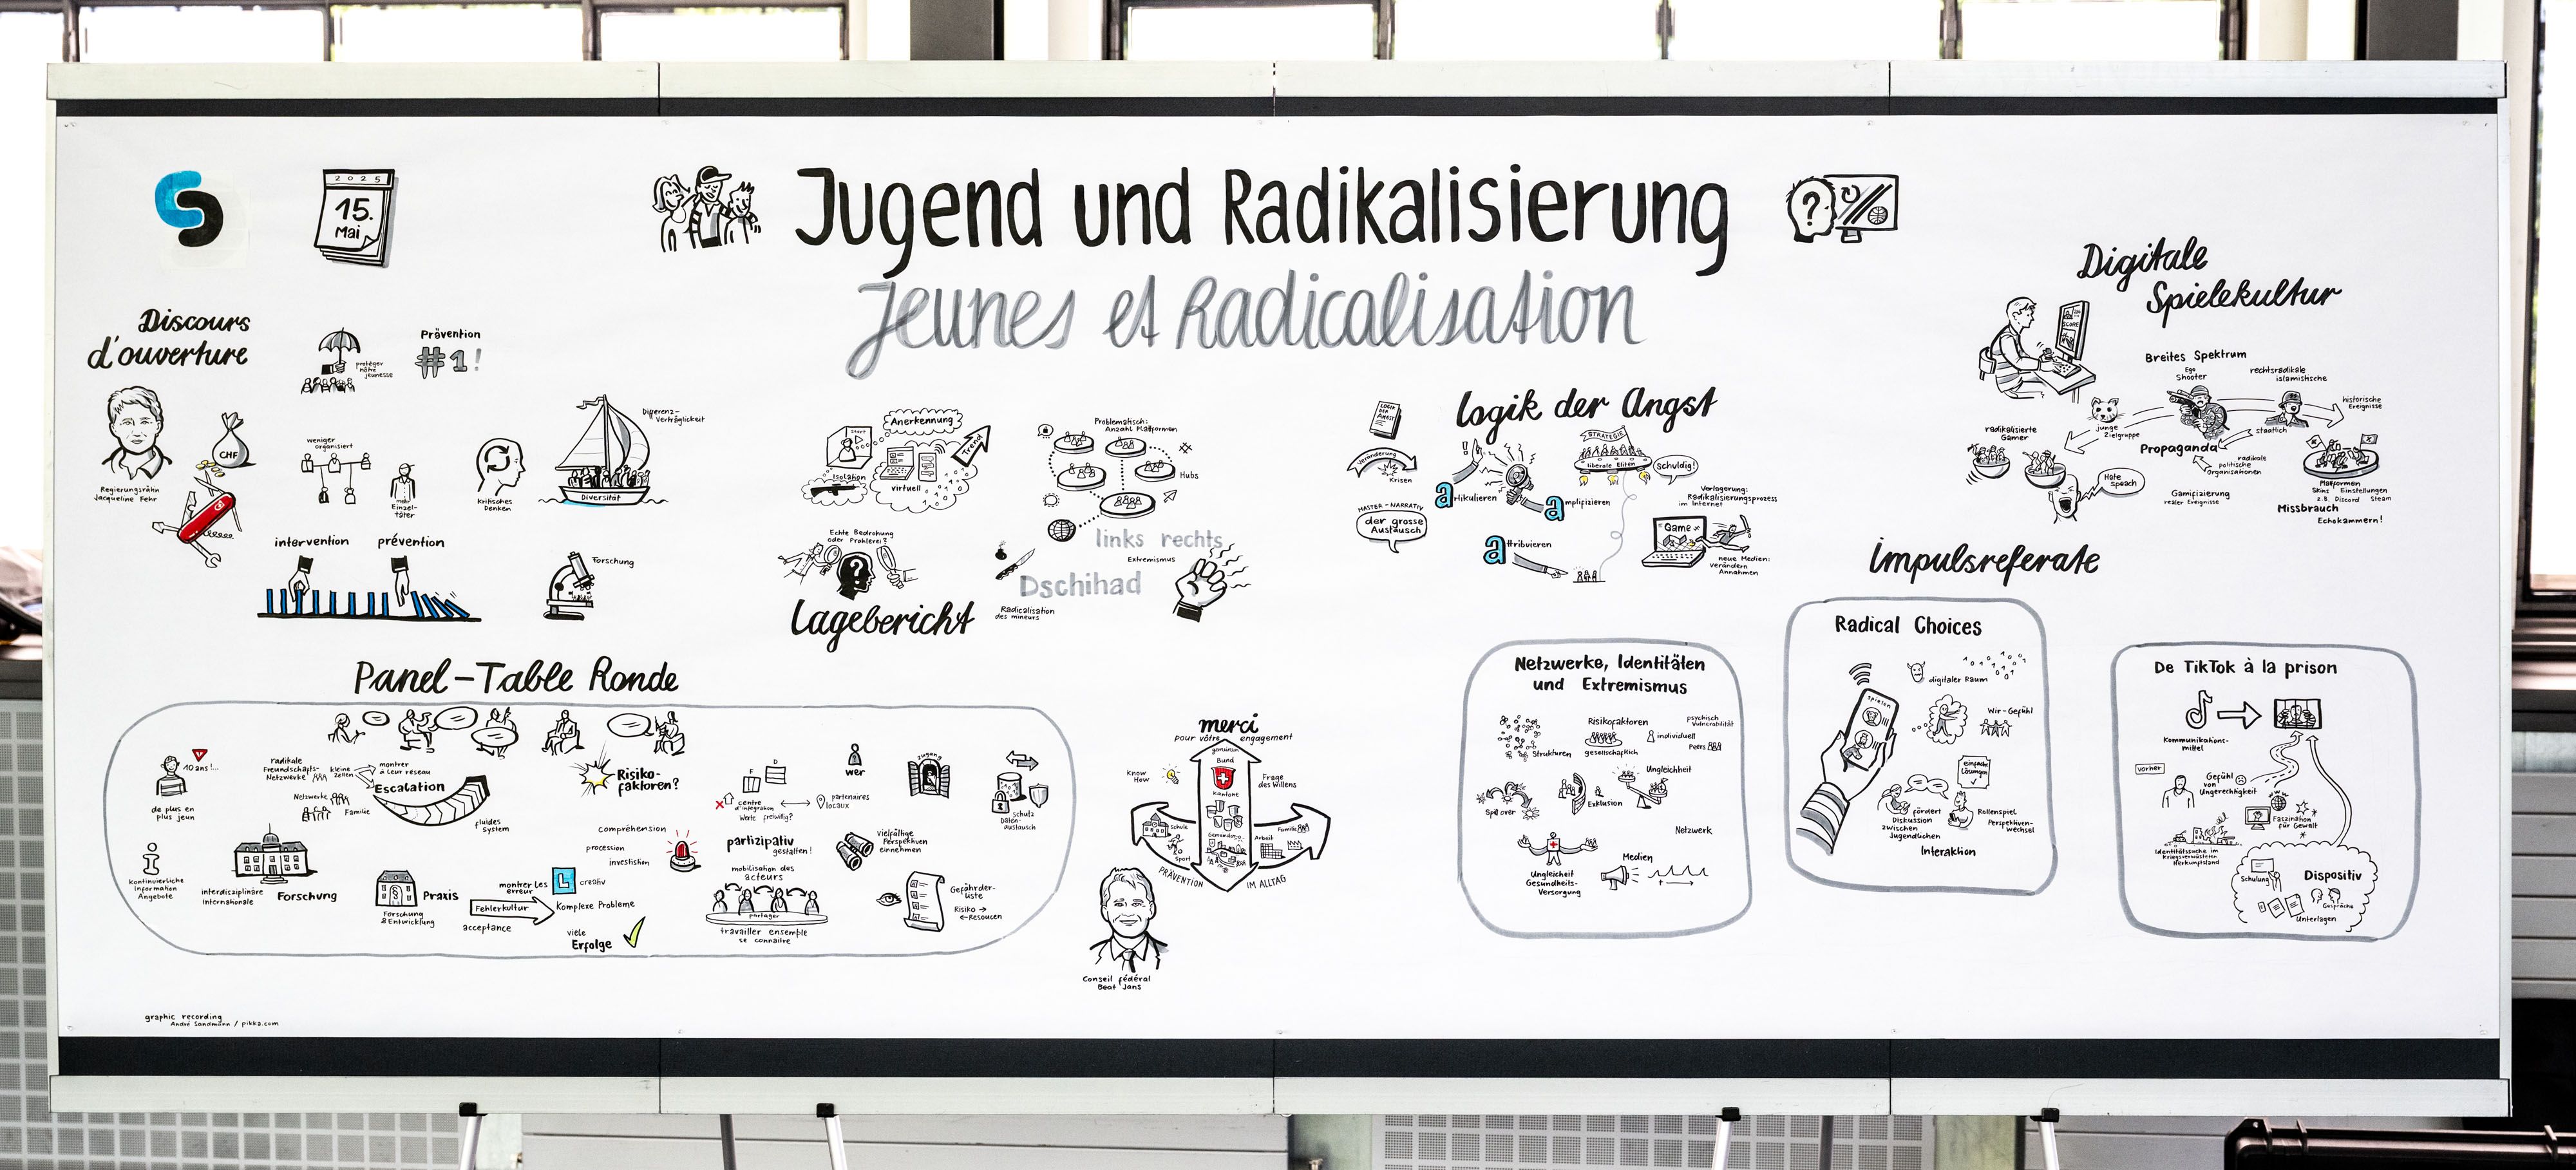 2025
15.
Mai
Jugend und Radikalisierung
Jeunes et Radicalisation
Discours
d'ouverture
Regierungsrätin
Jacqueline Fehr
CHF
protéger
notre
jeunesse
Prävention
#1!
weniger
organisiert
mehr
Einzel-
täter
kritisches
Denken
Differenz-
Verträglichkeit
Diversität
intervention
prévention
Forschung
Anerkennung
Isolation
virtuell
Trend
Problematisch:
Anzahl Plattformen
Hubs
Echte Bedrohung
oder Prahlerei?
Lagebericht
links rechts
Extremismus
Dschihad
Radicalisation
des mineurs
Logik der Angst
LOGIK
DER
ANGST
Veränderung
Krisen
MASTER-NARRATIV
der grosse
Austausch
artikulieren
amplifizieren
attribuieren
STRATEGIE
liberale Eliten
Schuldig!
Verlagerung:
Radikalisierungsprozess
im Internet
Game
neue Medien:
verändern
Annahmen
Digitale
Spielekultur
SCORE
Breites Spektrum
Ego
Shooter
rechtsradikale
islamistische
historische
Ereignisse
junge
Zielgruppe
staatlich
radikalisierte
Gamer
Propaganda
radikale
politische
Organisationen
Hate
speach
Gamifizierung
realer Ereignisse
Plattformen
Skins Einstellungen
z.B. Discord Steam
Missbrauch
Echokammern!
Impulsreferate
Netzwerke, Identitäten
und Extremismus
Strukturen
Risikofaktoren
gesellschaftlich
individuell
psychisch
Vulnerabilität
Peers
Spill over
Exklusion
Ungleichheit
Netzwerk
Ungleicheit
Gesundheits-
Versorgung
Medien
Radical Choices
spielen
digitaler Raum
Wir-Gefühl
einfache
Lösungen
fördert
Diskussion
zwischen
Jugendlichen
Rollenspiel
Perspektiven-
wechsel
Interaktion
De TikTok à la prison
Kommunikations-
mittel
vorher
Gefühl
von
Ungerechtigkeit
www
Faszination
für Gewalt
Identitätssuche im
kriegsverwüsteten
Herkunftsland
Schulung
Dispositiv
Gespräche
Unterlagen
Panel-Table Ronde
10 ans!...
de plus en
plus jeun
radikale
Freundschafts-
Netzwerke
kleine
Zellen
montrer
à leur réseau
Escalation
Netzwerke
Familie
fluides
system
Risiko-
faktoren?
F
D
centre
d'intégration
Werte freiwillig?
partenaires
locaux
wer
zugang
Schutz
Daten-
austausch
kontinuierliche
Information
Angebote
interdisziplinäre
internationale
Forschung
Forschung
& Entwicklung
Praxis
compréhension
procession
investistion
montrer les
erreur
L
creativ
Fehlerkultur
acceptance
Komplexe Probleme
viele
Erfolge
partizipativ
gestalten!
mobilisation des
acteurs
partager
travailler ensemble
se connaître
vielfältige
Perspektiven
einnehmen
Gefährder-
liste
Risiko →
← Resoucen
merci
pour vôtre engagement
gemeinsam
Bund
Kantone
Gemeinden
Know
How
Frage
des Willens
Schule
Sport
Arbeit
Familie
PRÄVENTION
IM ALLTAG
Conseil fédéral
Beat Jans
graphic recording
André Sandmann / pikka.com